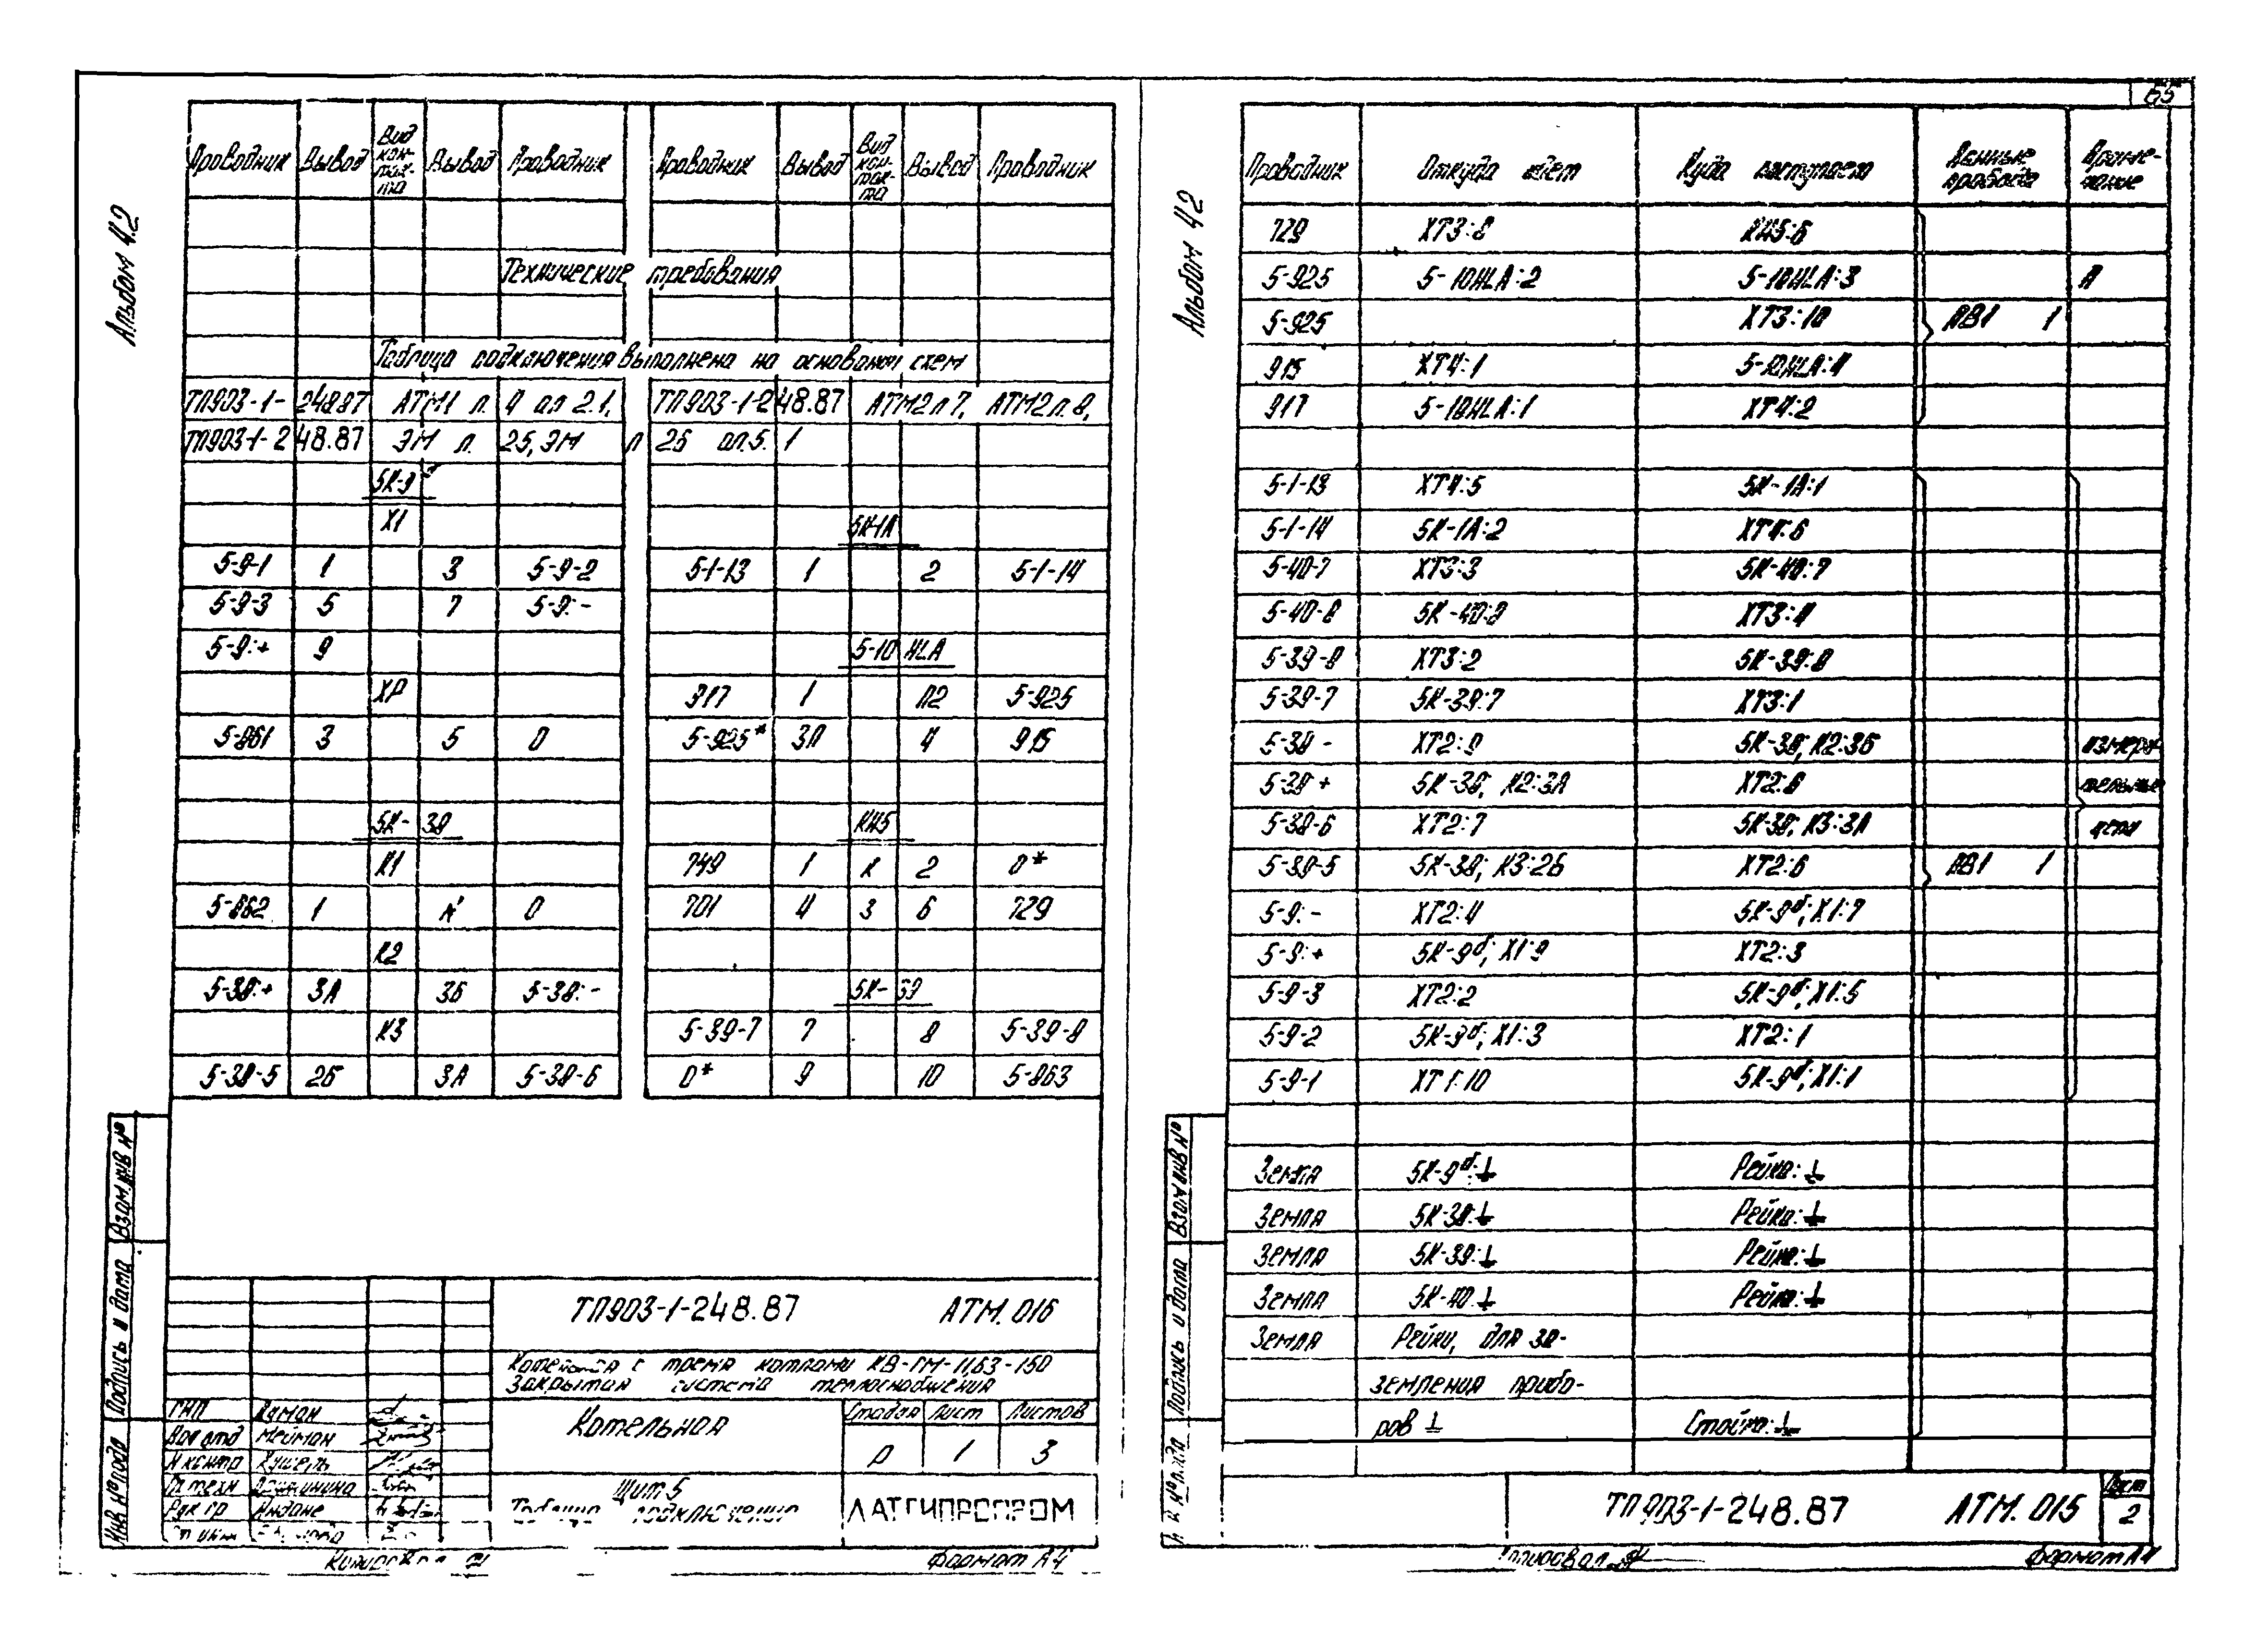 65
Альбом 4.2
Проводник Вывод Вид кон-так-та Вывод Проводник Проводник Вывод Вид кон-так-та Вывод Проводник
Технические требования
Таблица подключения выполнена на основании схем
ТП903-1-248.87 АТМ1 л. 4 ал 2.1, ТП903-1-248.87 АТМ2 л 7, АТМ2 л. 8,
ТП903-1-248.87 ЭМ л. 25, ЭМ л 26 ал.5.1
5К-9б
Х1 5К-1А
5-9-1 1 3 5-9-2 5-1-13 1 2 5-1-14
5-9-3 5 7 5-9:-
5-9:+ 9 5-10 HLA
ХР 917 1 П2 5-925
5-861 3 5 0 5-925* 3П 4 915
5К-38 КН5
К1 749 1 К 2 0*
5-862 1 0 701 4 3 6 729
К2
5-38:+ 3А 3Б 5-38:- 5К-39
К3 5-39-7 7 8 5-39-8
5-38-5 2Б 3А 5-38-6 0* 9 10 5-863
ТП903-1-248.87 АТМ. 016
Котельная с тремя котлами КВ-ГМ-11,63-150
Закрытая система теплоснабжения
ГИП
Нач отд Мейман
Н контр Кушель
Гл техн
Рук гр Индане
Котельная
Стадия Лист Листов
Р 1 3
Щит 5
Таблица подключения
ЛАТГИПРОПРОМ
Инв № подл Подпись и дата Взам. инв №
Копировал
Формат А4
Альбом 4.2
Проводник Откуда идет Куда поступает Данные провода Приме-чание
729 ХТ3:8 КН5:6
5-925 5-10HLA:2 5-10HLA:3 П
5-925 ХТ3:10 ПВ1 1
915 ХТ4:1 5-10HLA:4
917 5-10HLA:1 ХТ4:2
5-1-13 ХТ4:5 5К-1А:1
5-1-14 5К-1А:2 ХТ4:6
5-40-7 ХТ3:3 5К-40:7
5-40-8 5К-40:8 ХТ3:4
5-39-8 ХТ3:2 5К-39:8
5-39-7 5К-39:7 ХТ3:1
5-38 - ХТ2:9 5К-38; К2:3Б измери-
5-38 + 5К-38; К2:3А ХТ2:8 тельные
5-38-6 ХТ2:7 5К-38; К3:3А цепи
5-38-5 5К-38; К3:2Б ХТ2:6 ПВ1 1
5-9:- ХТ2:4 5К-9б; Х1:7
5-9:+ 5К-9б; Х1:9 ХТ2:3
5-9-3 ХТ2:2 5К-9б; Х1:5
5-9-2 5К-9б; Х1:3 ХТ2:1
5-9-1 ХТ1:10 5К-9б; Х1:1
Земля 5К-9б:⏚ Рейка:⏚
Земля 5К-38:⏚ Рейка:⏚
Земля 5К-39:⏚ Рейка:⏚
Земля 5К-40:⏚ Рейка:⏚
Земля Рейки, для за-
земления прибо-
ров ⏚ Стойка:⏚
ТП903-1-248.87 АТМ. 015
Лист
2
Инв № подл Подпись и дата Взам инв №
Копировал
Формат А4